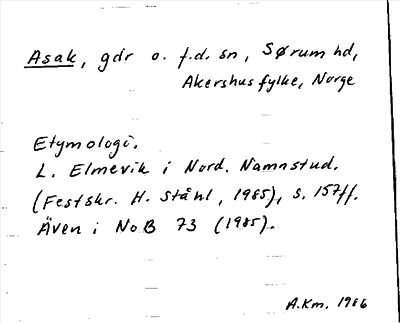 Asak, gdr o. f.d. sn, Sørum hd,
Akershus fylke, Norge
Etymologi.
L. Elmevik i Nord. Namnstud.
(Festskr. H. Ståhl, 1985), s. 157ff.
Även i NoB 73 (1985).
A.Km. 1986